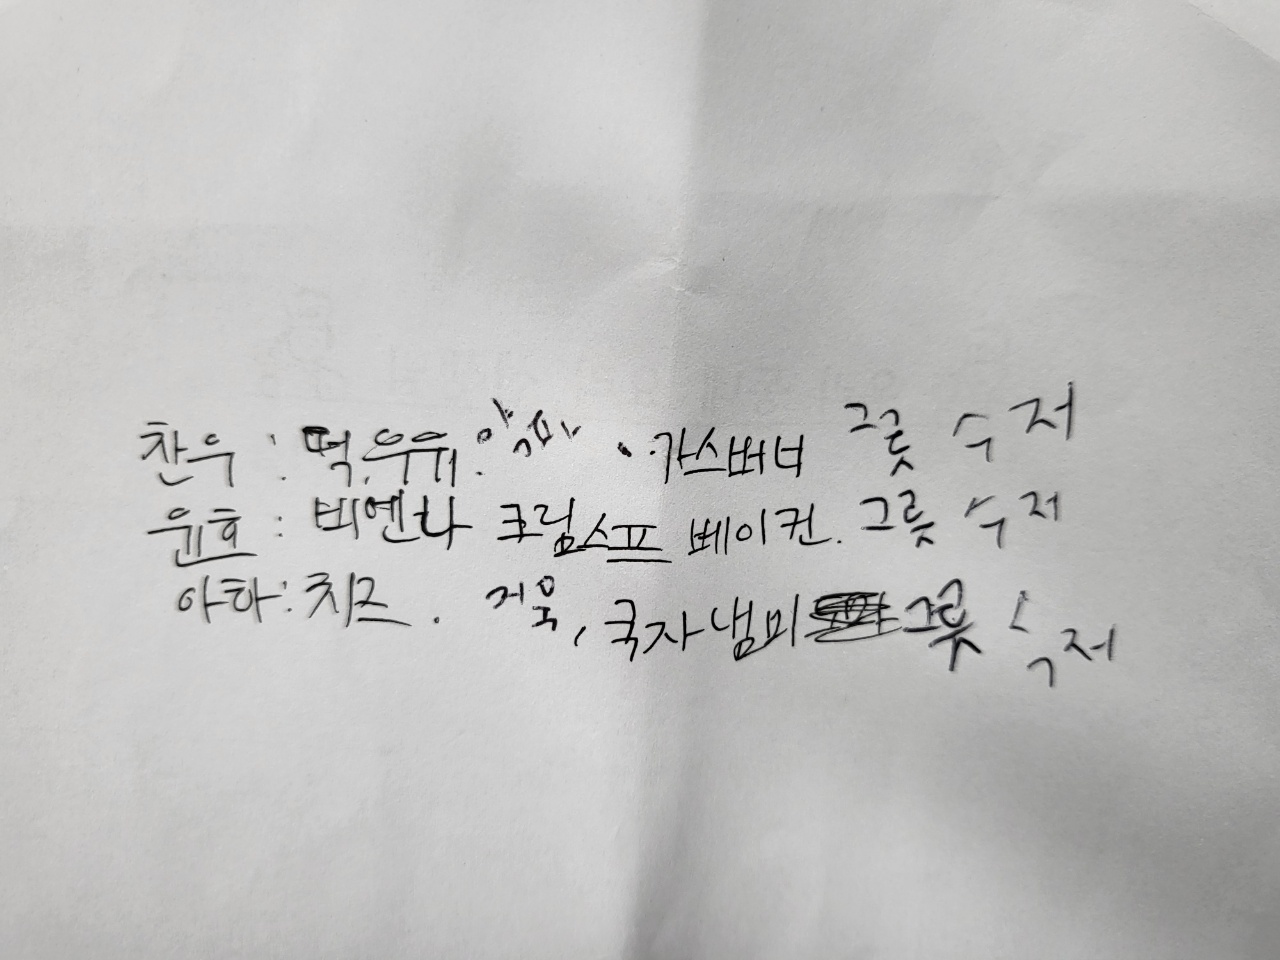 찬우 : 떡, 우유. · 가스버너 그릇 수저
윤호 : 비엔나 크림스프 베이컨. 그릇 수저
아하 : 치즈. 국자 냄비 그릇 수저